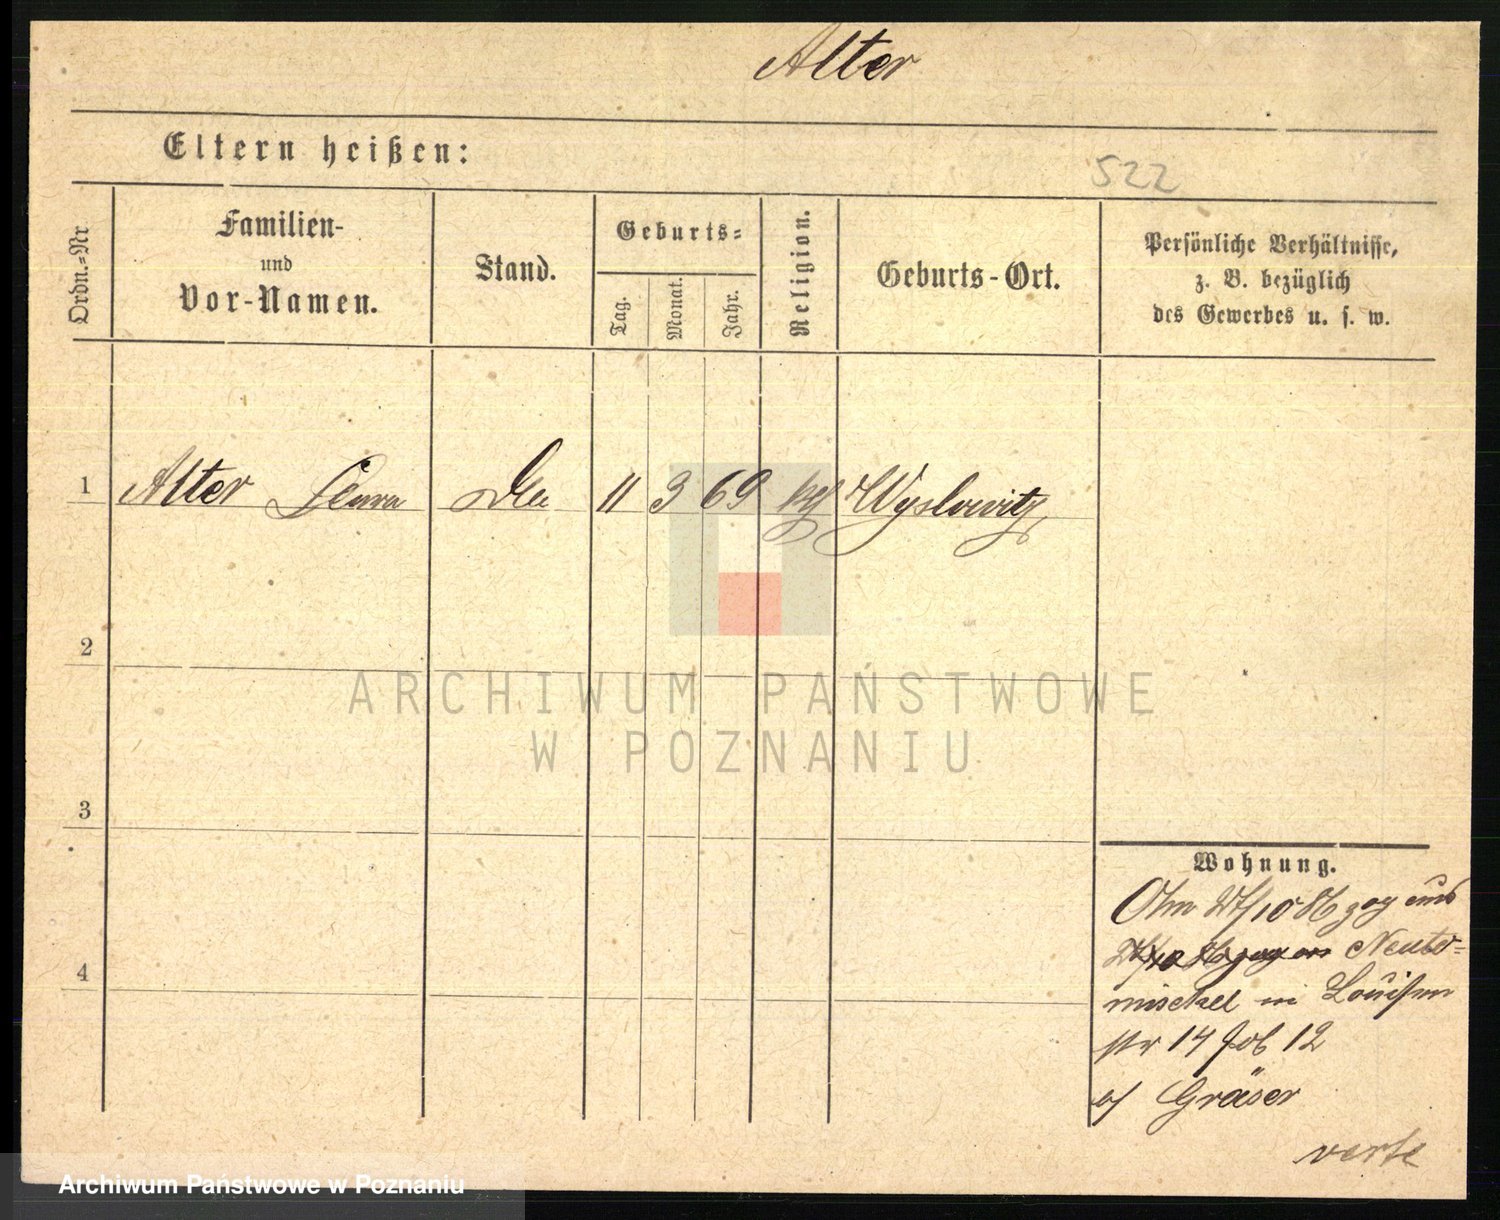 Alter
Eltern heißen:
522
Ordn.-Nr
Familien-
und
Vor-Namen.
Stand.
Geburts-
Tag.
Monat.
Jahr.
Religion.
Geburts-Ort.
Persönliche Verhältnisse,
z. B. bezüglich
des Gewerbes u. s. w.
1 Alter Clara 11 3 69 Wyslowitz
2
3
4
ARCHIWUM PAŃSTWOWE
W POZNANIU
Wohnung.
Am 27/10 86 zog aus
Neuto-
mischel in Louisen
str 14 12
Gräser
verte
Archiwum Państwowe w Poznaniu